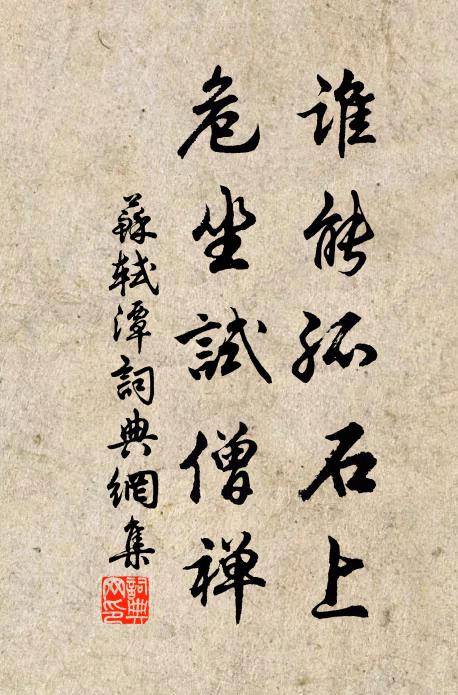 誰能孤石上
危坐試僧禪
蘇軾潭詞典網集
詞典网印